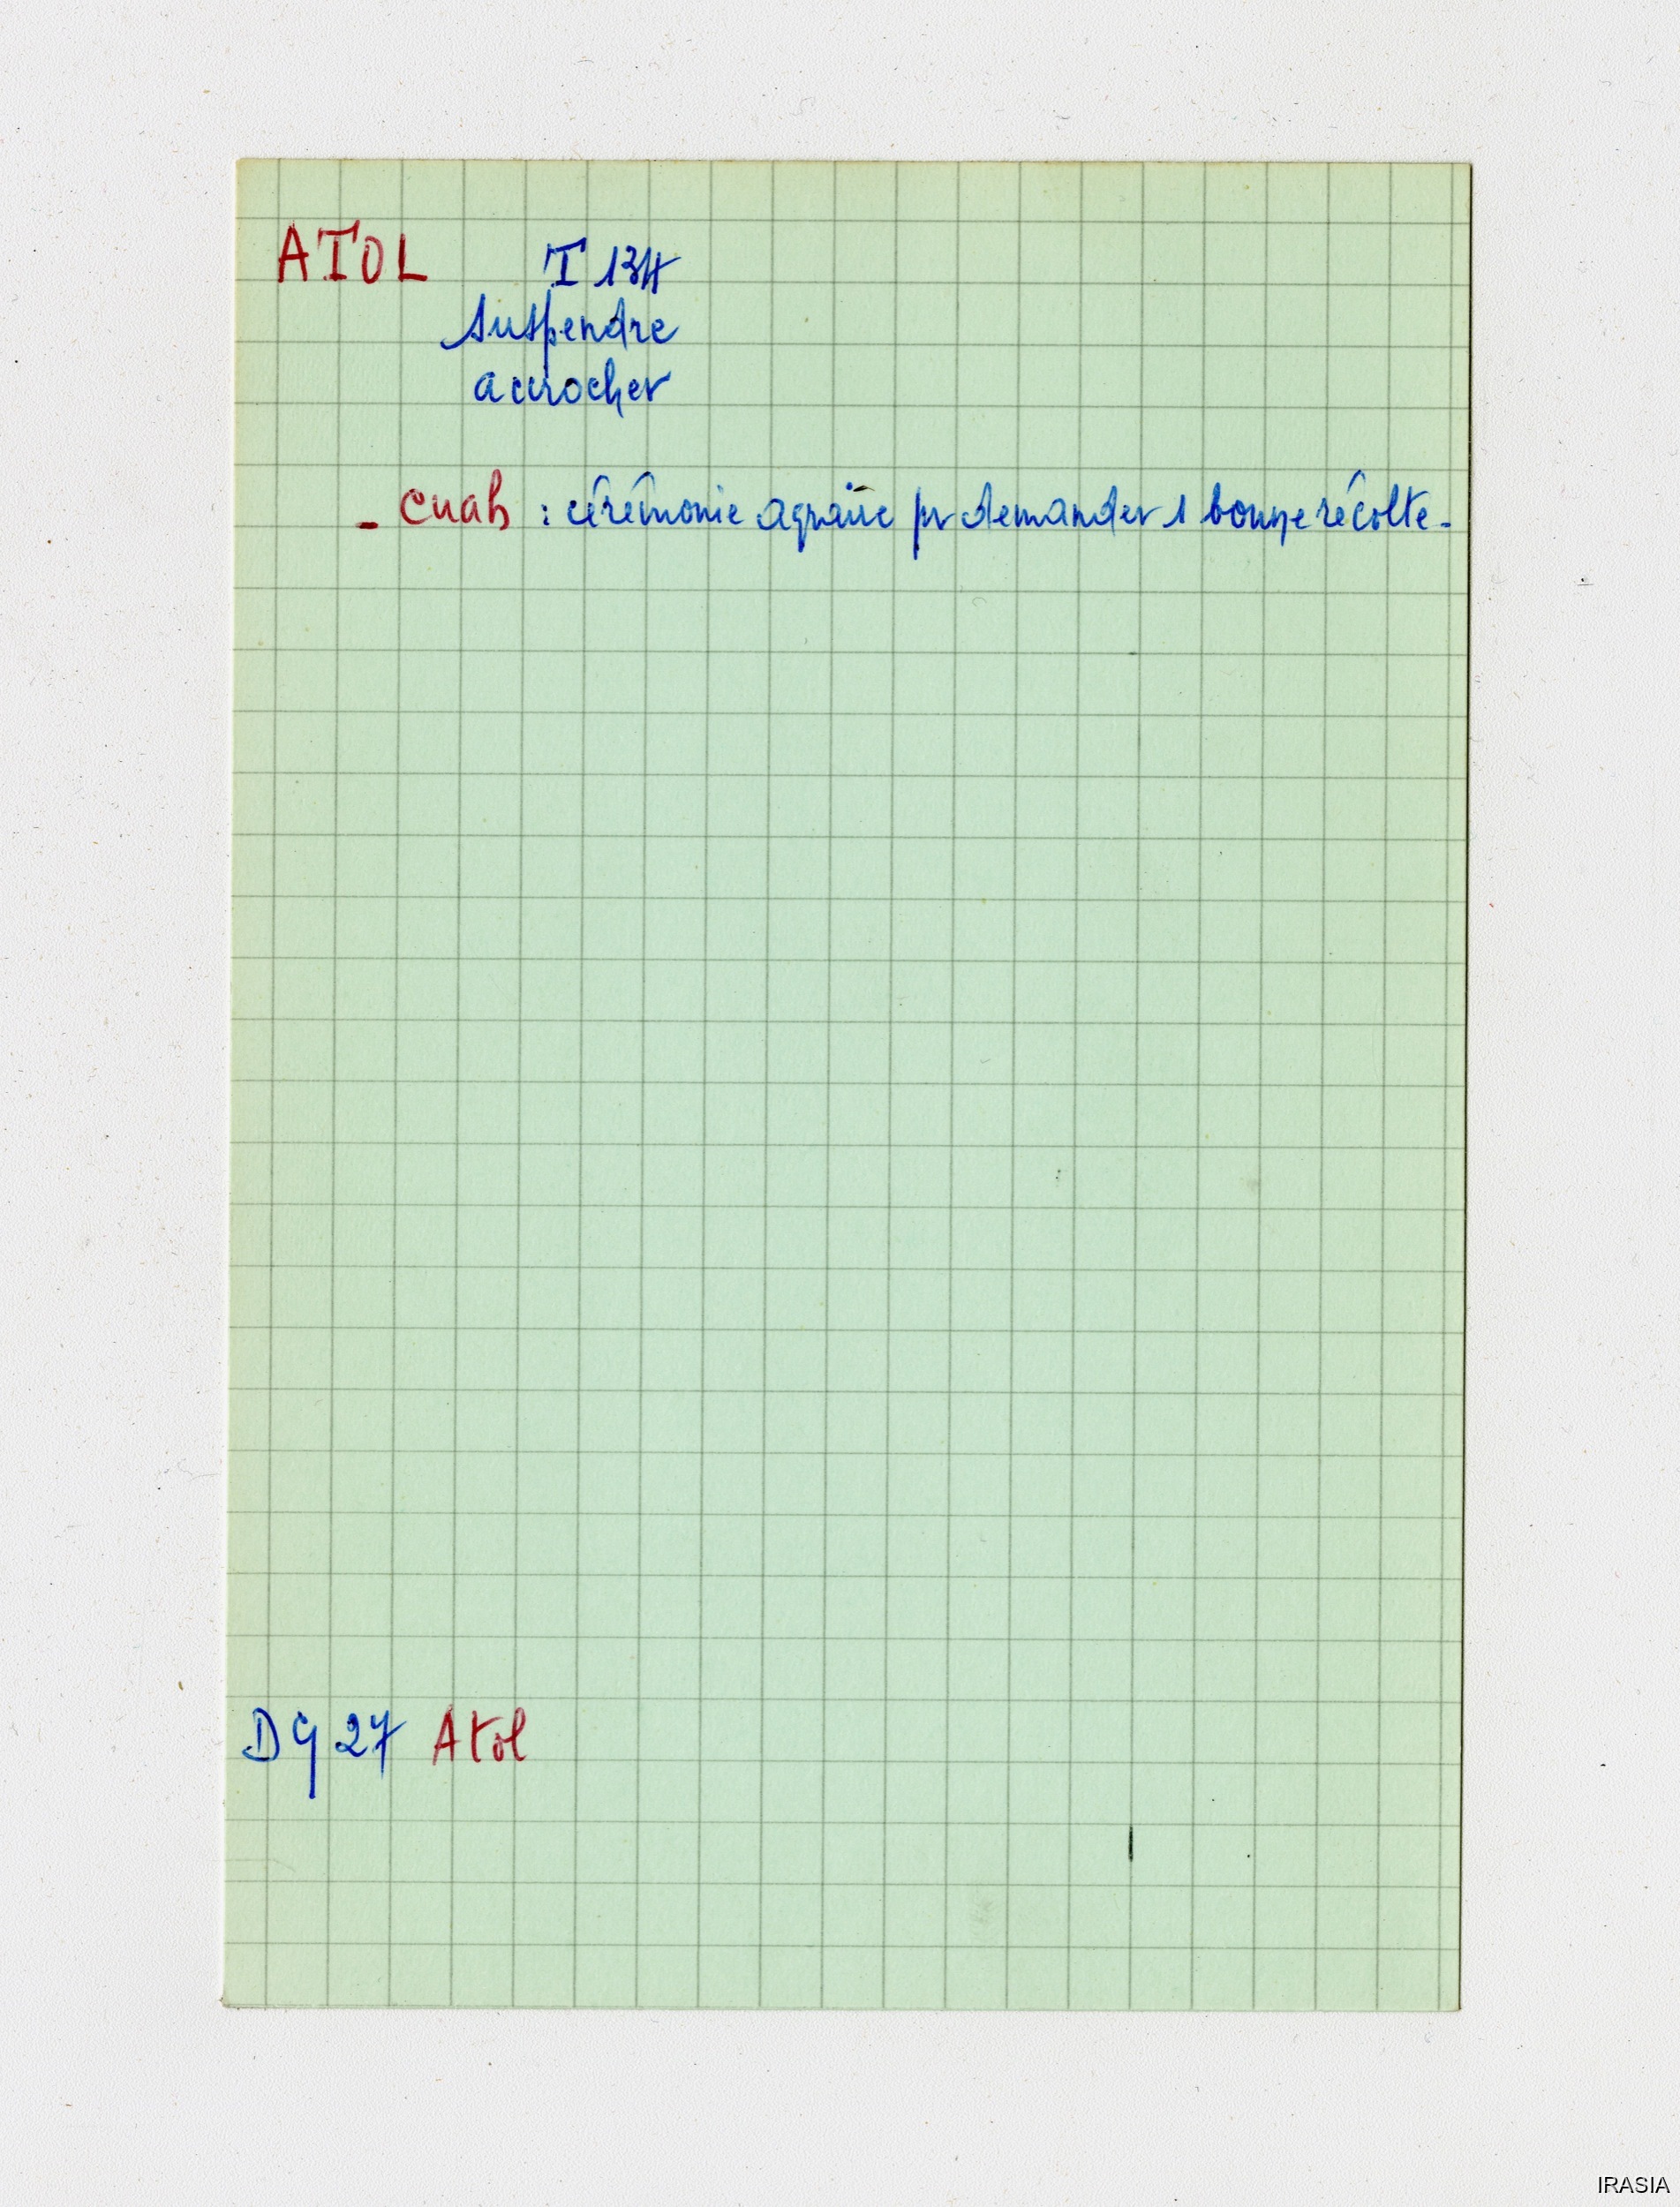 ATOL T 134
suspendre
accrocher
- cuah : cérémonie agraire pr demander 1 bonne récolte.
DG 27 Atol
IRASIA